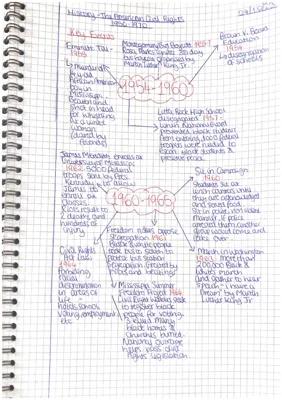 History - The American Civil Rights
1950-1970
Key Events
Emmett Till -
1955
↳ murdered
14 yr old
African American
boy in
Mississippi.
Beaten and
shot in head
for whistling
at a white
woman
(dared by
friends)
Montgomery Bus Boycott 1955
Rosa Parks ignites 381 day
bus boycott organised by
Martin Luther King Jr.
Brown V. Board
Education
1954
of schools
1954-1960
Little Rock High School
desegregated 1957 -
National Guard
prevented black student
from entering. 1000 federal
troops were needed to
escort black students &
preserve peace
James Meredith enrolled on
University Mississippi
1962. 5000 federal
troops sent by Pres
Kennedy to allow
James to
enrol for
classes.
Riots result to
2 deaths and
hundreds of
injury
Sit in Campaign
1960
Students sit at
lunch counters until
they are acknowledged
and served food.
Sit in point non violent
manner, if police
arrested them another
group would come and
take over
1960-1965
Freedom riders oppose
Segregation 1961
Black & white people
took bus south to
protest bus station
segregation (greeted by
riots and beatings)
March on Washington
1963. more than
200,000 Black &
White march
and gather to hear
speech - 'I have a
Dream' by Martin
Luther King Jr
Civil Rights
Act Pass
1964
forbidding
racial
discrimination
in areas of
life -
hotels, school,
voting, employment
etc
Mississippi Summer
Freedom Project 1964
Civil Rights workers seek
to register black
people for voting.
3 killed many
black homes &
churches burned.
National outrage
helps pass civil
rights legislation